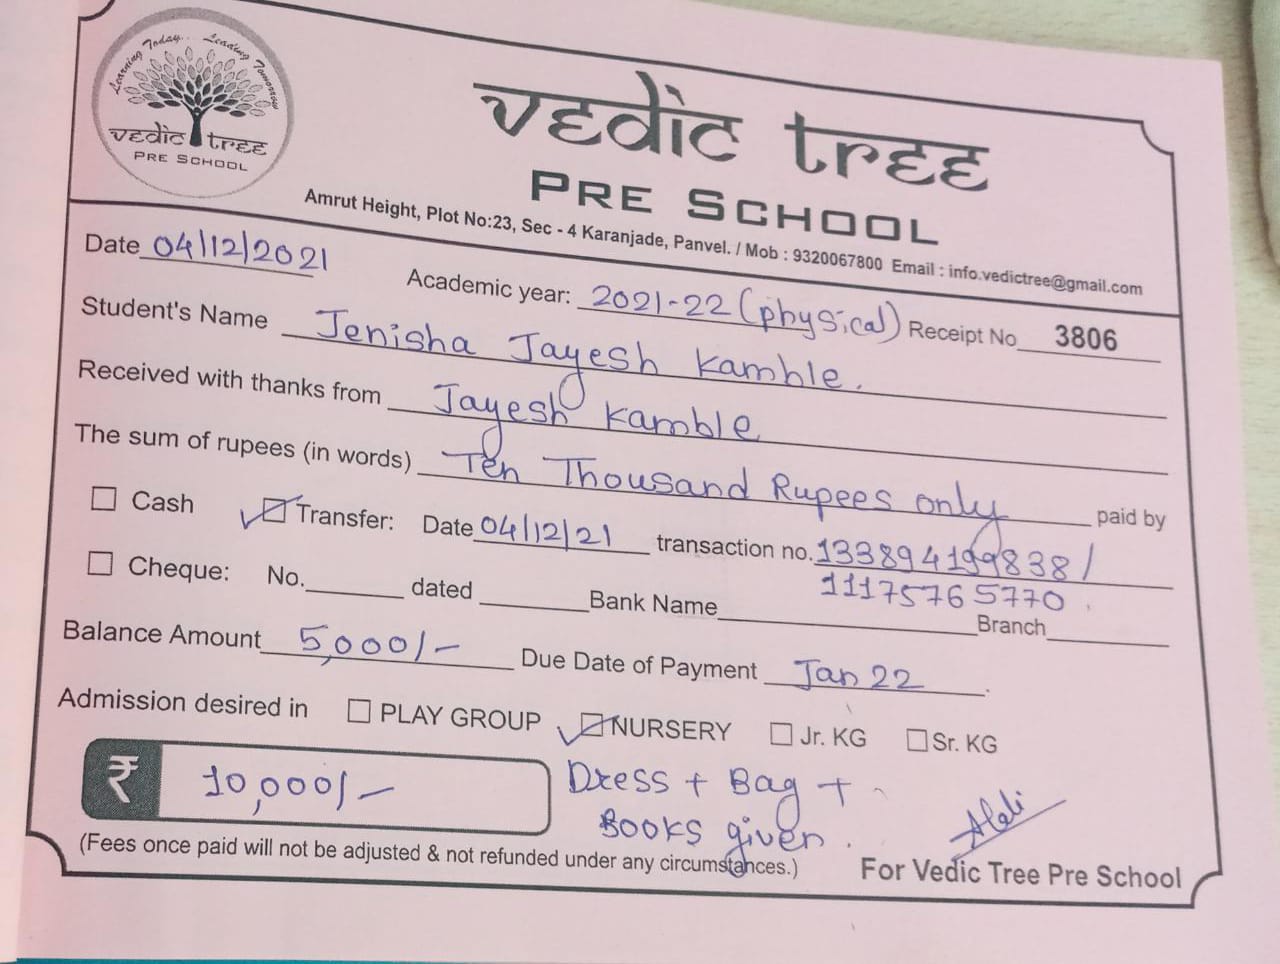 Learning Today... Leading Tomorrow
vedic tree
PRE SCHOOL
vedic tree
PRE SCHOOL
Amrut Height, Plot No:23, Sec - 4 Karanjade, Panvel. / Mob : 9320067800 Email : info.vedictree@gmail.com
Date 04/12/2021
Academic year: 2021-22 (physical) Receipt No 3806
Student's Name Jenisha Jayesh Kamble.
Received with thanks from Jayesh Kamble
The sum of rupees (in words) Ten Thousand Rupees only paid by
Cash Transfer: Date 04/12/21 transaction no. 133894199838/
11175765770
Cheque: No. dated Bank Name Branch
Balance Amount 5,000/- Due Date of Payment Jan 22
Admission desired in PLAY GROUP NURSERY Jr. KG Sr. KG
₹ 10,000/- Dress + Bag +
Books given.
(Fees once paid will not be adjusted & not refunded under any circumstances.)
For Vedic Tree Pre School